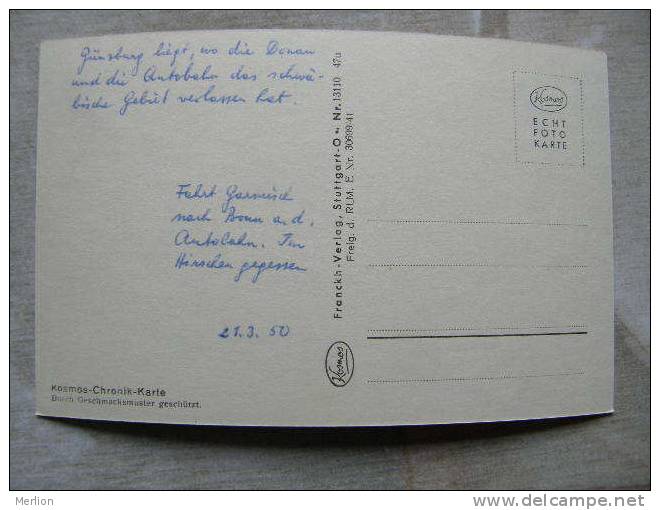 Günzburg liegt, wo die Donau
und die Autobahn das schwä-
bische Gebiet verlassen hat.
Fahrt Garmisch
nach Bonn a. d.
Autobahn. Im
Hirschen gegessen
21.3.50
Kosmos-Chronik-Karte
Durch Geschmacksmuster geschützt.
Franckh-Verlag, Stuttgart-O • Nr. 13110 47a
Freig. d. RLM. E. Nr. 30609/41
Kosmos
Kosmos
ECHT
FOTO
KARTE
Merlion
www.delcampe.net